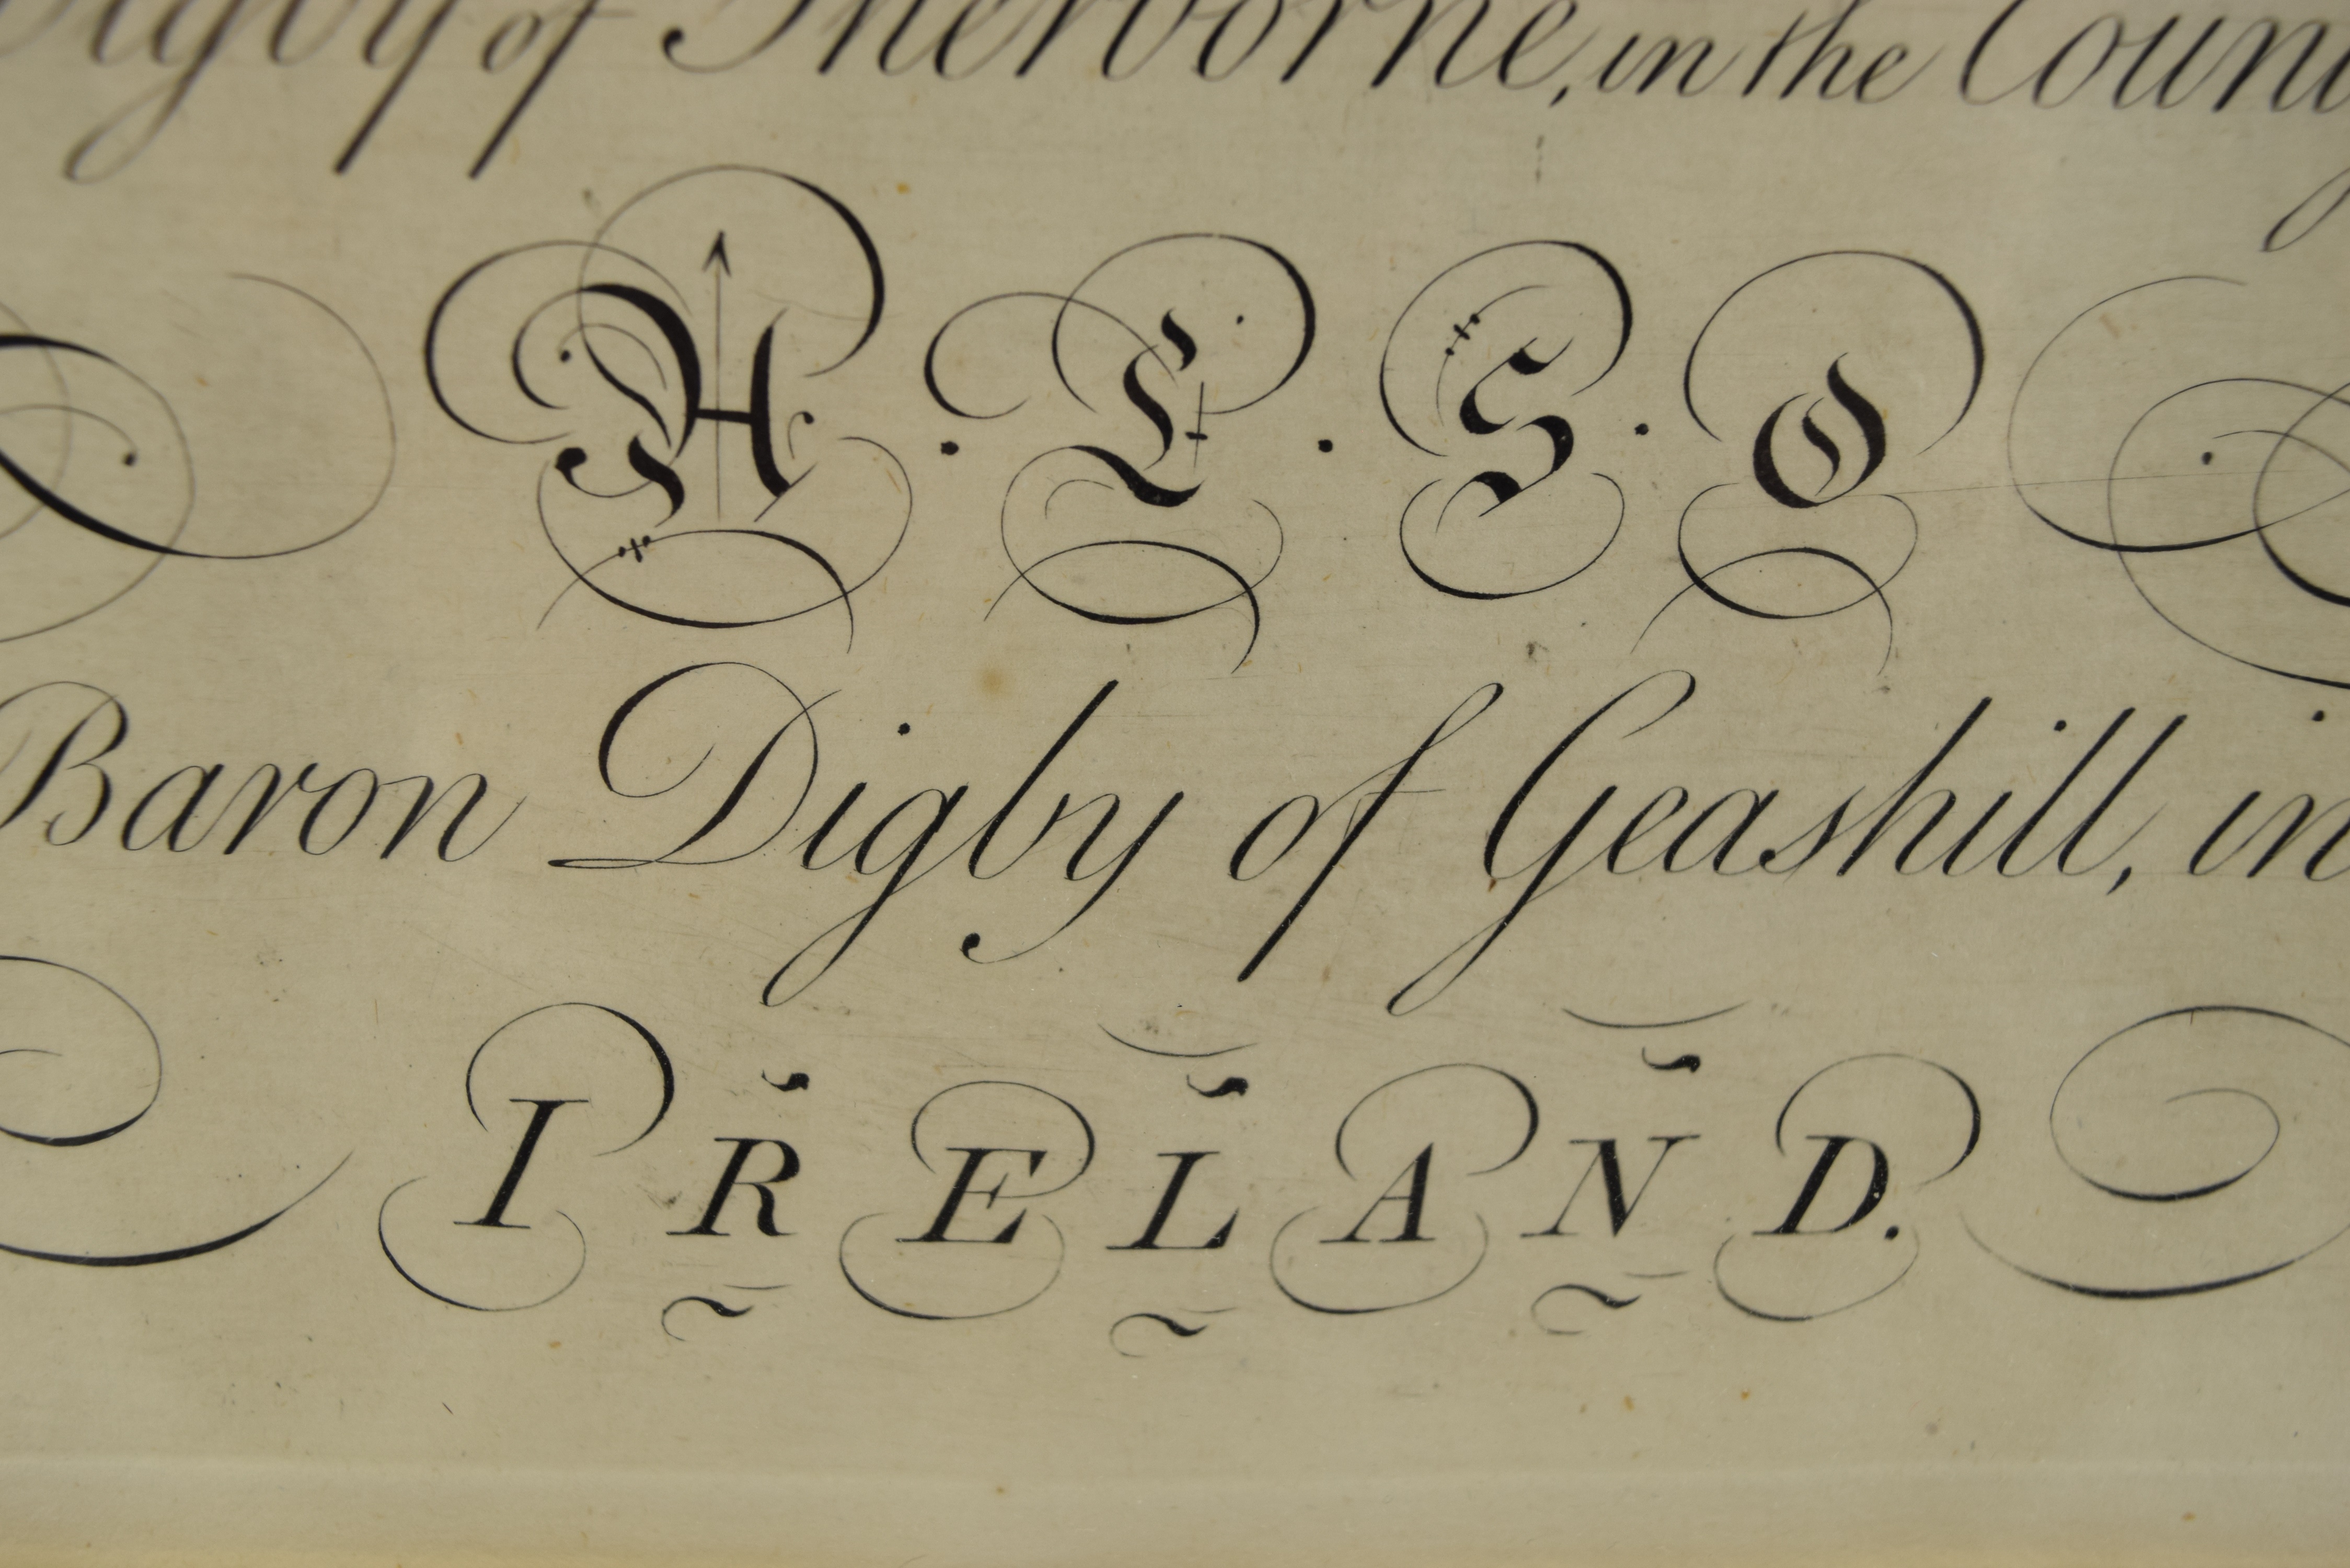 Digby of Sherborne, in the Coun
A · L · S · O
Baron Digby of Geashill, in
IRELAND.